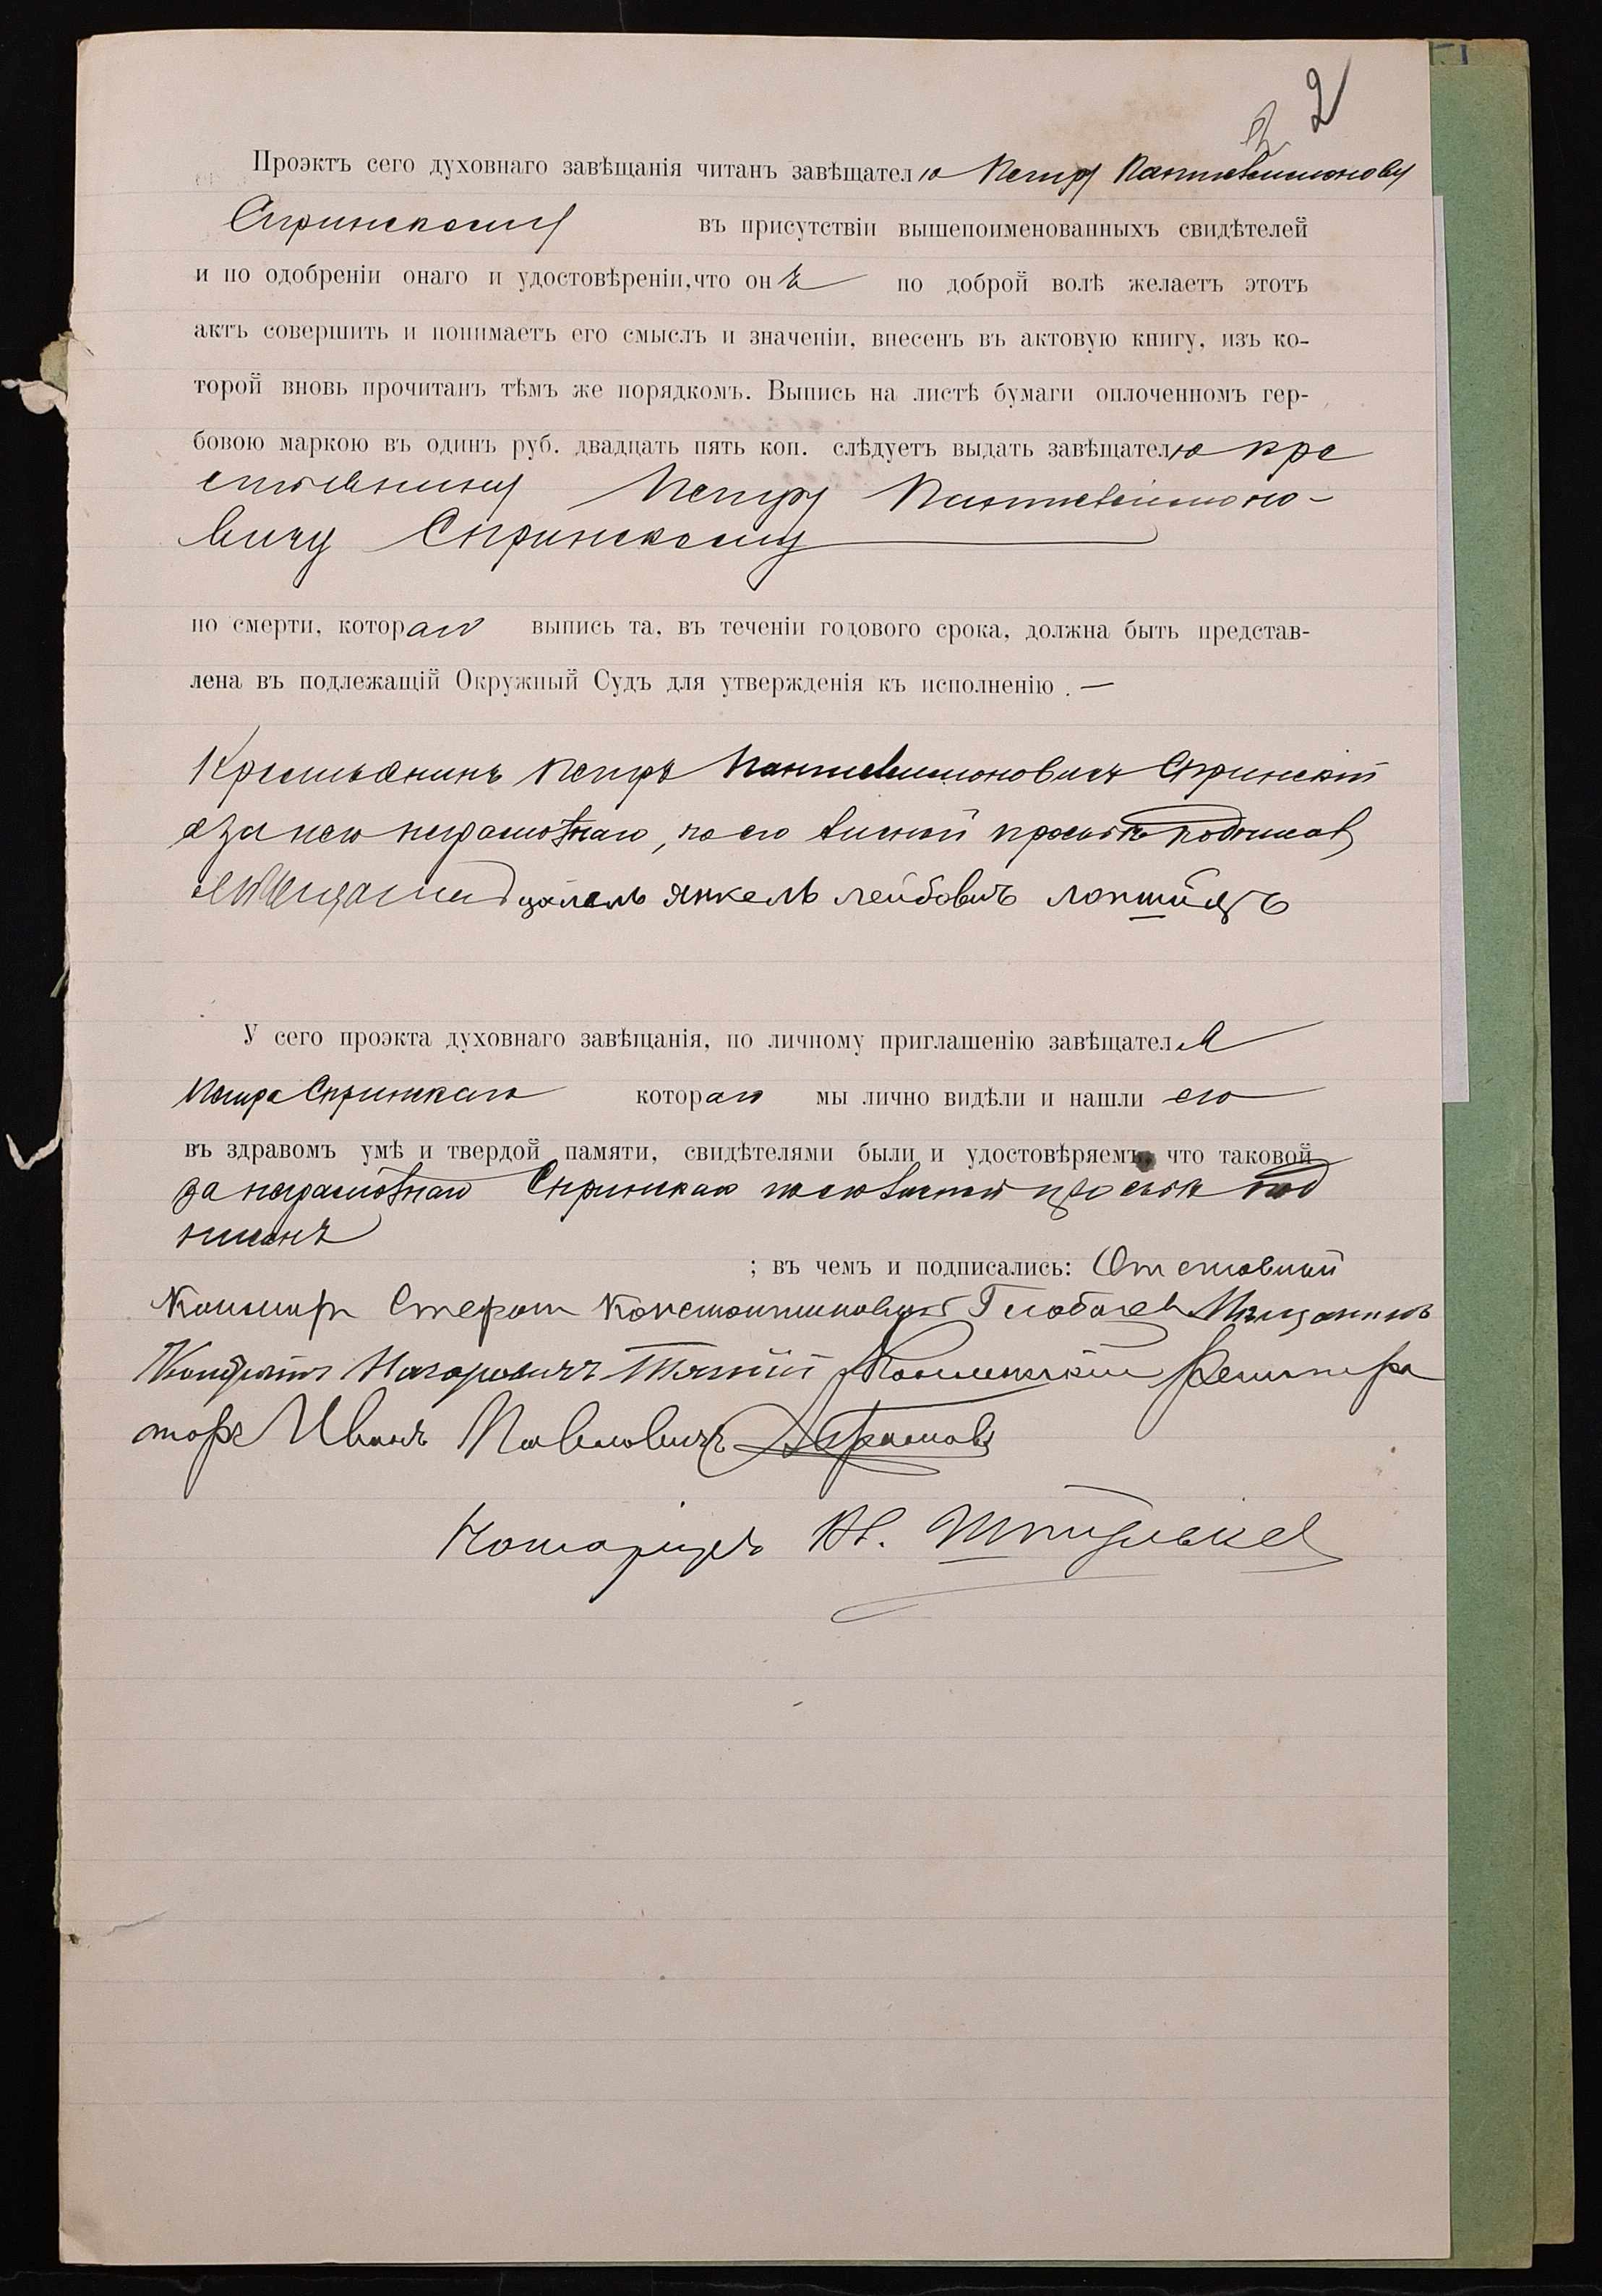 2
Проэктъ сего духовнаго завѣщанія читанъ завѣщателю Петру Пантелеимонову
Спринскому въ присутствіи вышепоименованныхъ свидѣтелей
и по одобреніи онаго и удостовѣреніи, что онъ по доброй волѣ желаетъ этотъ
актъ совершить и понимаетъ его смыслъ и значеніи, внесенъ въ актовую книгу, изъ ко-
торой вновь прочитанъ тѣмъ же порядкомъ. Выпись на листѣ бумаги оплоченномъ гер-
бовою маркою въ одинъ руб. двадцать пять коп. слѣдуетъ выдать завѣщателю кре
стьянину Петру Пантелеимоно-
вичу Спринскому
по смерти, котораго выпись та, въ теченіи годового срока, должна быть представ-
лена въ подлежащій Окружный Судъ для утвержденія къ исполненію. —
Крестьянинъ Петръ Пантелеимоновичъ Спринскій
а за него неграмотнаго, по его личной просьбѣ подписалъ
Янкель Лейбовичъ
У сего проэкта духовнаго завѣщанія, по личному приглашенію завѣщателя
Петра Спринскаго котораго мы лично видѣли и нашли его
въ здравомъ умѣ и твердой памяти, свидѣтелями были и удостовѣряемъ, что таковой
за неграмотнаго Спринскаго по его личной просьбѣ под
писанъ
; въ чемъ и подписались: Отставной
Стефан Константиновичъ Мѣщанинъ
Регистра
торъ Иванъ Павловичъ Абрамовъ
Нотаріусъ